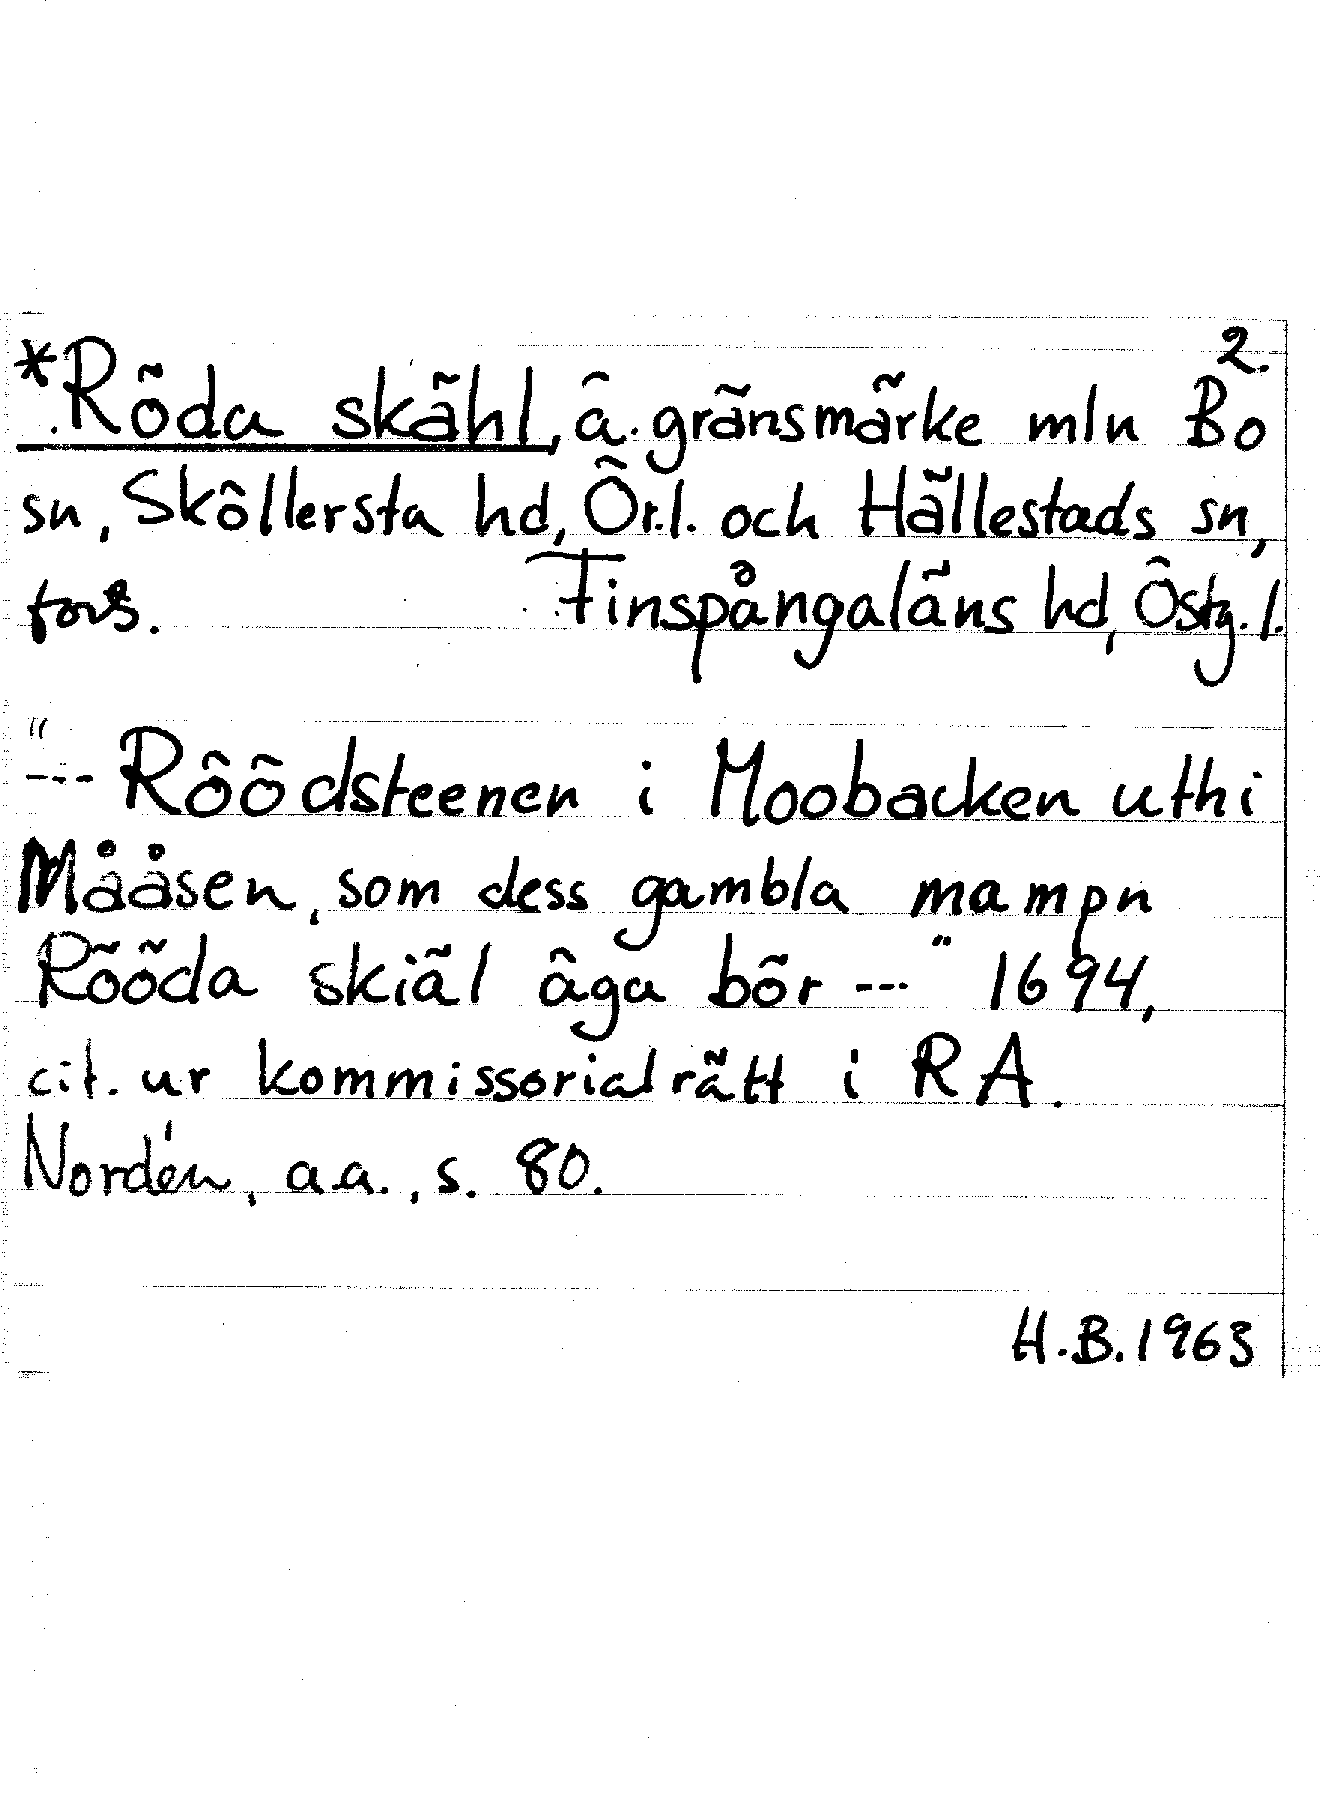 2.
*Röda skähl, ä. gränsmärke mln Bo
sn, Sköllersta hd, Ör.l. och Hällestads sn,
forts. Finspångaläns hd, Östg.l.
"
--- Röödsteenen i Moobacken uthi
Mååsen, som dess gambla mampn
Rööda skiäl äga bör ---" 1694,
cit. ur kommissorialrätt i RA.
Nordén, a.a., s. 80.
H.B. 1963